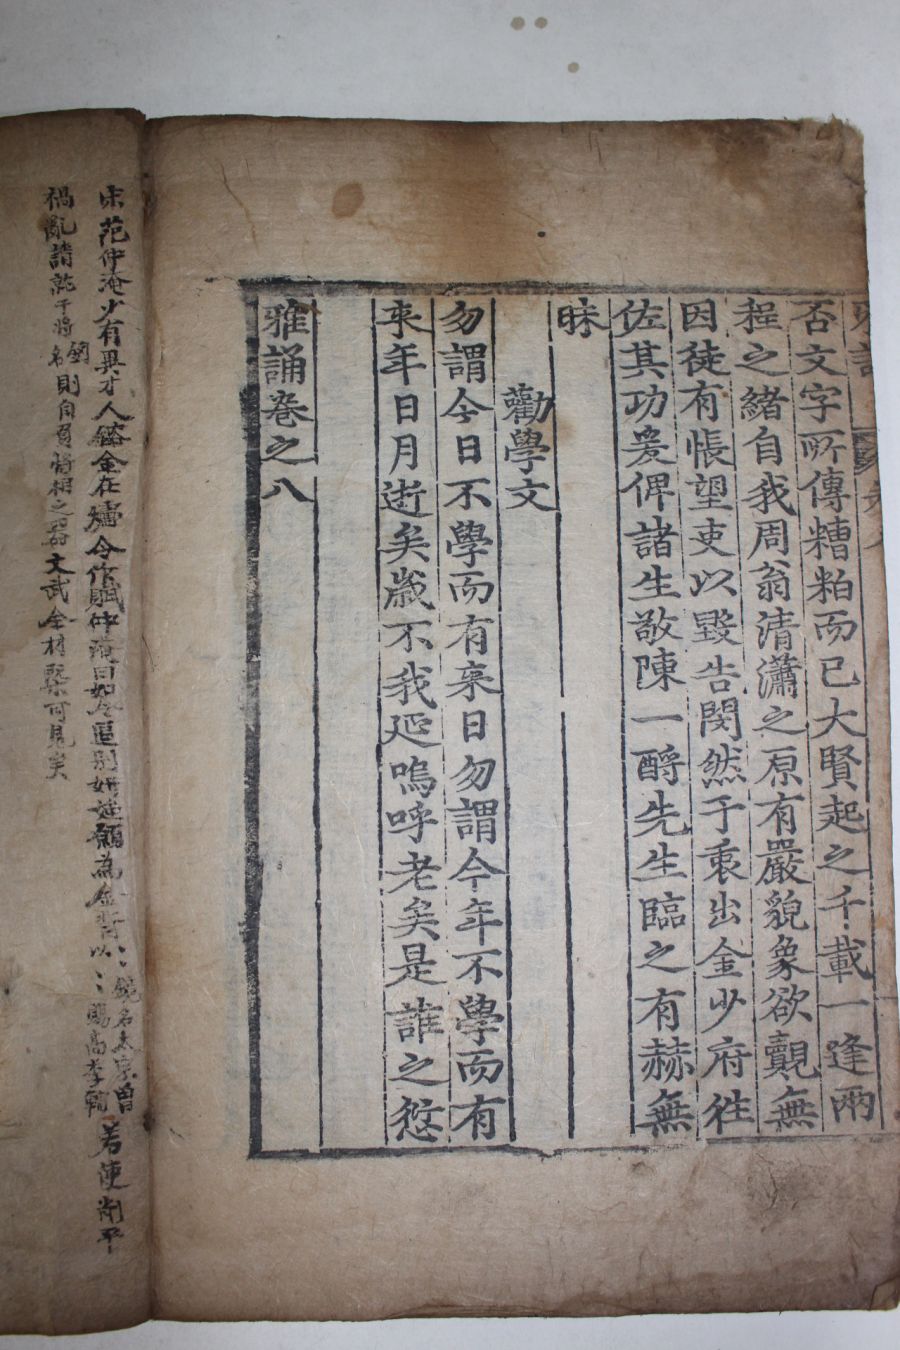 否文字所傳糟粕而已大賢起之千載一逢兩
程之緒自我周翁清瀟之原有嚴貌象欲觀無
因徒有悵望吏以毀告閔然于衷出金少府徃
佐其功爰俾諸生敬陳一酹先生臨之有赫無
昧
勸學文
勿謂今日不學而有来日勿謂今年不學而有
来年日月逝矣歲不我延嗚呼老矣是誰之愆
雅誦卷之八
宋范仲淹少有異才人 金在爐令作賦仲淹曰如今 願為金
禍亂請 干將 劒名 則自負將相之器文武全材槩可見矣